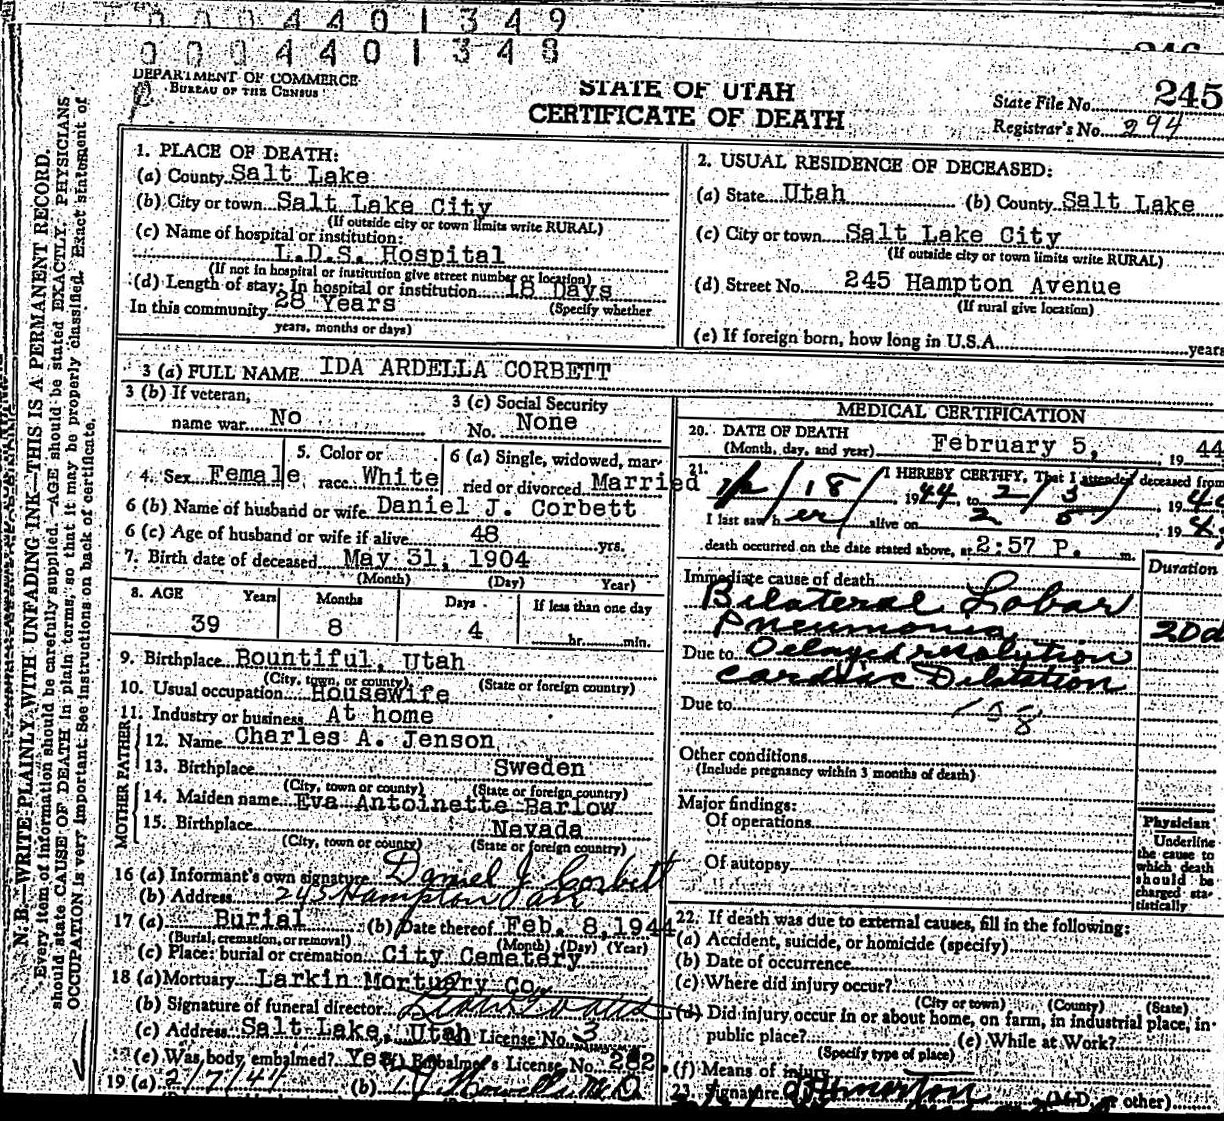 0004401349
0004401348
DEPARTMENT OF COMMERCE
BUREAU OF THE CENSUS
STATE OF UTAH
CERTIFICATE OF DEATH
State File No. 245
Registrar's No. 294
N. B.—WRITE PLAINLY WITH UNFADING INK—THIS IS A PERMANENT RECORD.
Every item of information should be carefully supplied. AGE should be stated EXACTLY. PHYSICIANS
should state CAUSE OF DEATH in plain terms, so that it may be properly classified. Exact statement of
OCCUPATION is very important. See instructions on back of certificate.
1. PLACE OF DEATH:
(a) County Salt Lake
(b) City or town Salt Lake City
(If outside city or town limits write RURAL)
(c) Name of hospital or institution:
L.D.S. Hospital
(If not in hospital or institution give street number or location)
(d) Length of stay: In hospital or institution 18 Days
In this community 28 Years (Specify whether
years, months or days)
2. USUAL RESIDENCE OF DECEASED:
(a) State Utah (b) County Salt Lake
(c) City or town Salt Lake City
(If outside city or town limits write RURAL)
(d) Street No. 245 Hampton Avenue
(If rural give location)
(e) If foreign born, how long in U.S.A. years
3 (a) FULL NAME IDA ARDELLA CORBETT
3 (b) If veteran,
name war No
3 (c) Social Security
No. None
4. Sex Female
5. Color or
race White
6 (a) Single, widowed, mar-
ried or divorced Married
6 (b) Name of husband or wife Daniel J. Corbett
6 (c) Age of husband or wife if alive 48 yrs.
7. Birth date of deceased May 31, 1904
(Month) (Day) Year)
8. AGE Years Months Days If less than one day
39 8 4 hr. min.
9. Birthplace Bountiful, Utah
(City, town, or county) (State or foreign country)
10. Usual occupation Housewife
11. Industry or business At home
FATHER
12. Name Charles A. Jenson
13. Birthplace Sweden
(City, town or county) (State or foreign country)
MOTHER
14. Maiden name Eva Antoinette Barlow
15. Birthplace Nevada
(City, town or county) (State or foreign country)
16 (a) Informant's own signature Daniel J Corbett
(b) Address 245 Hampton
17 (a) Burial (b) Date thereof Feb. 8, 1944
(Burial, cremation, or removal) (Month) (Day) (Year)
(c) Place: burial or cremation City Cemetery
18 (a) Mortuary Larkin Mortuary Co.
(b) Signature of funeral director
(c) Address Salt Lake, Utah License No. 3
(e) Was body embalmed? Yes Embalmer's License No. 282.
19 (a) 2/7/44 (b) M.D.
MEDICAL CERTIFICATION
20. DATE OF DEATH
(Month, day, and year) February 5, 19 44
21. I HEREBY CERTIFY, That I attended deceased from
1/18/ 1944 to 2/5/ 19
I last saw her alive on 2 5 19
death occurred on the date stated above, at 2:57 P. m.
Duration
Immediate cause of death
Bilateral Lobar
Pneumonia 20d
Due to Delayed resolution
Cardiac Dilatation
Due to 108
Other conditions
(Include pregnancy within 3 months of death)
Major findings:
Of operations
Of autopsy
Physician
Underline
the cause to
which death
should be
charged sta-
tistically
22. If death was due to external causes, fill in the following:
(a) Accident, suicide, or homicide (specify)
(b) Date of occurrence
(c) Where did injury occur?
(City or town) (County) (State)
(d) Did injury occur in or about home, on farm, in industrial place, in
public place? (e) While at Work?
(Specify type of place)
(f) Means of injury
23. Signature (M.D. or other)